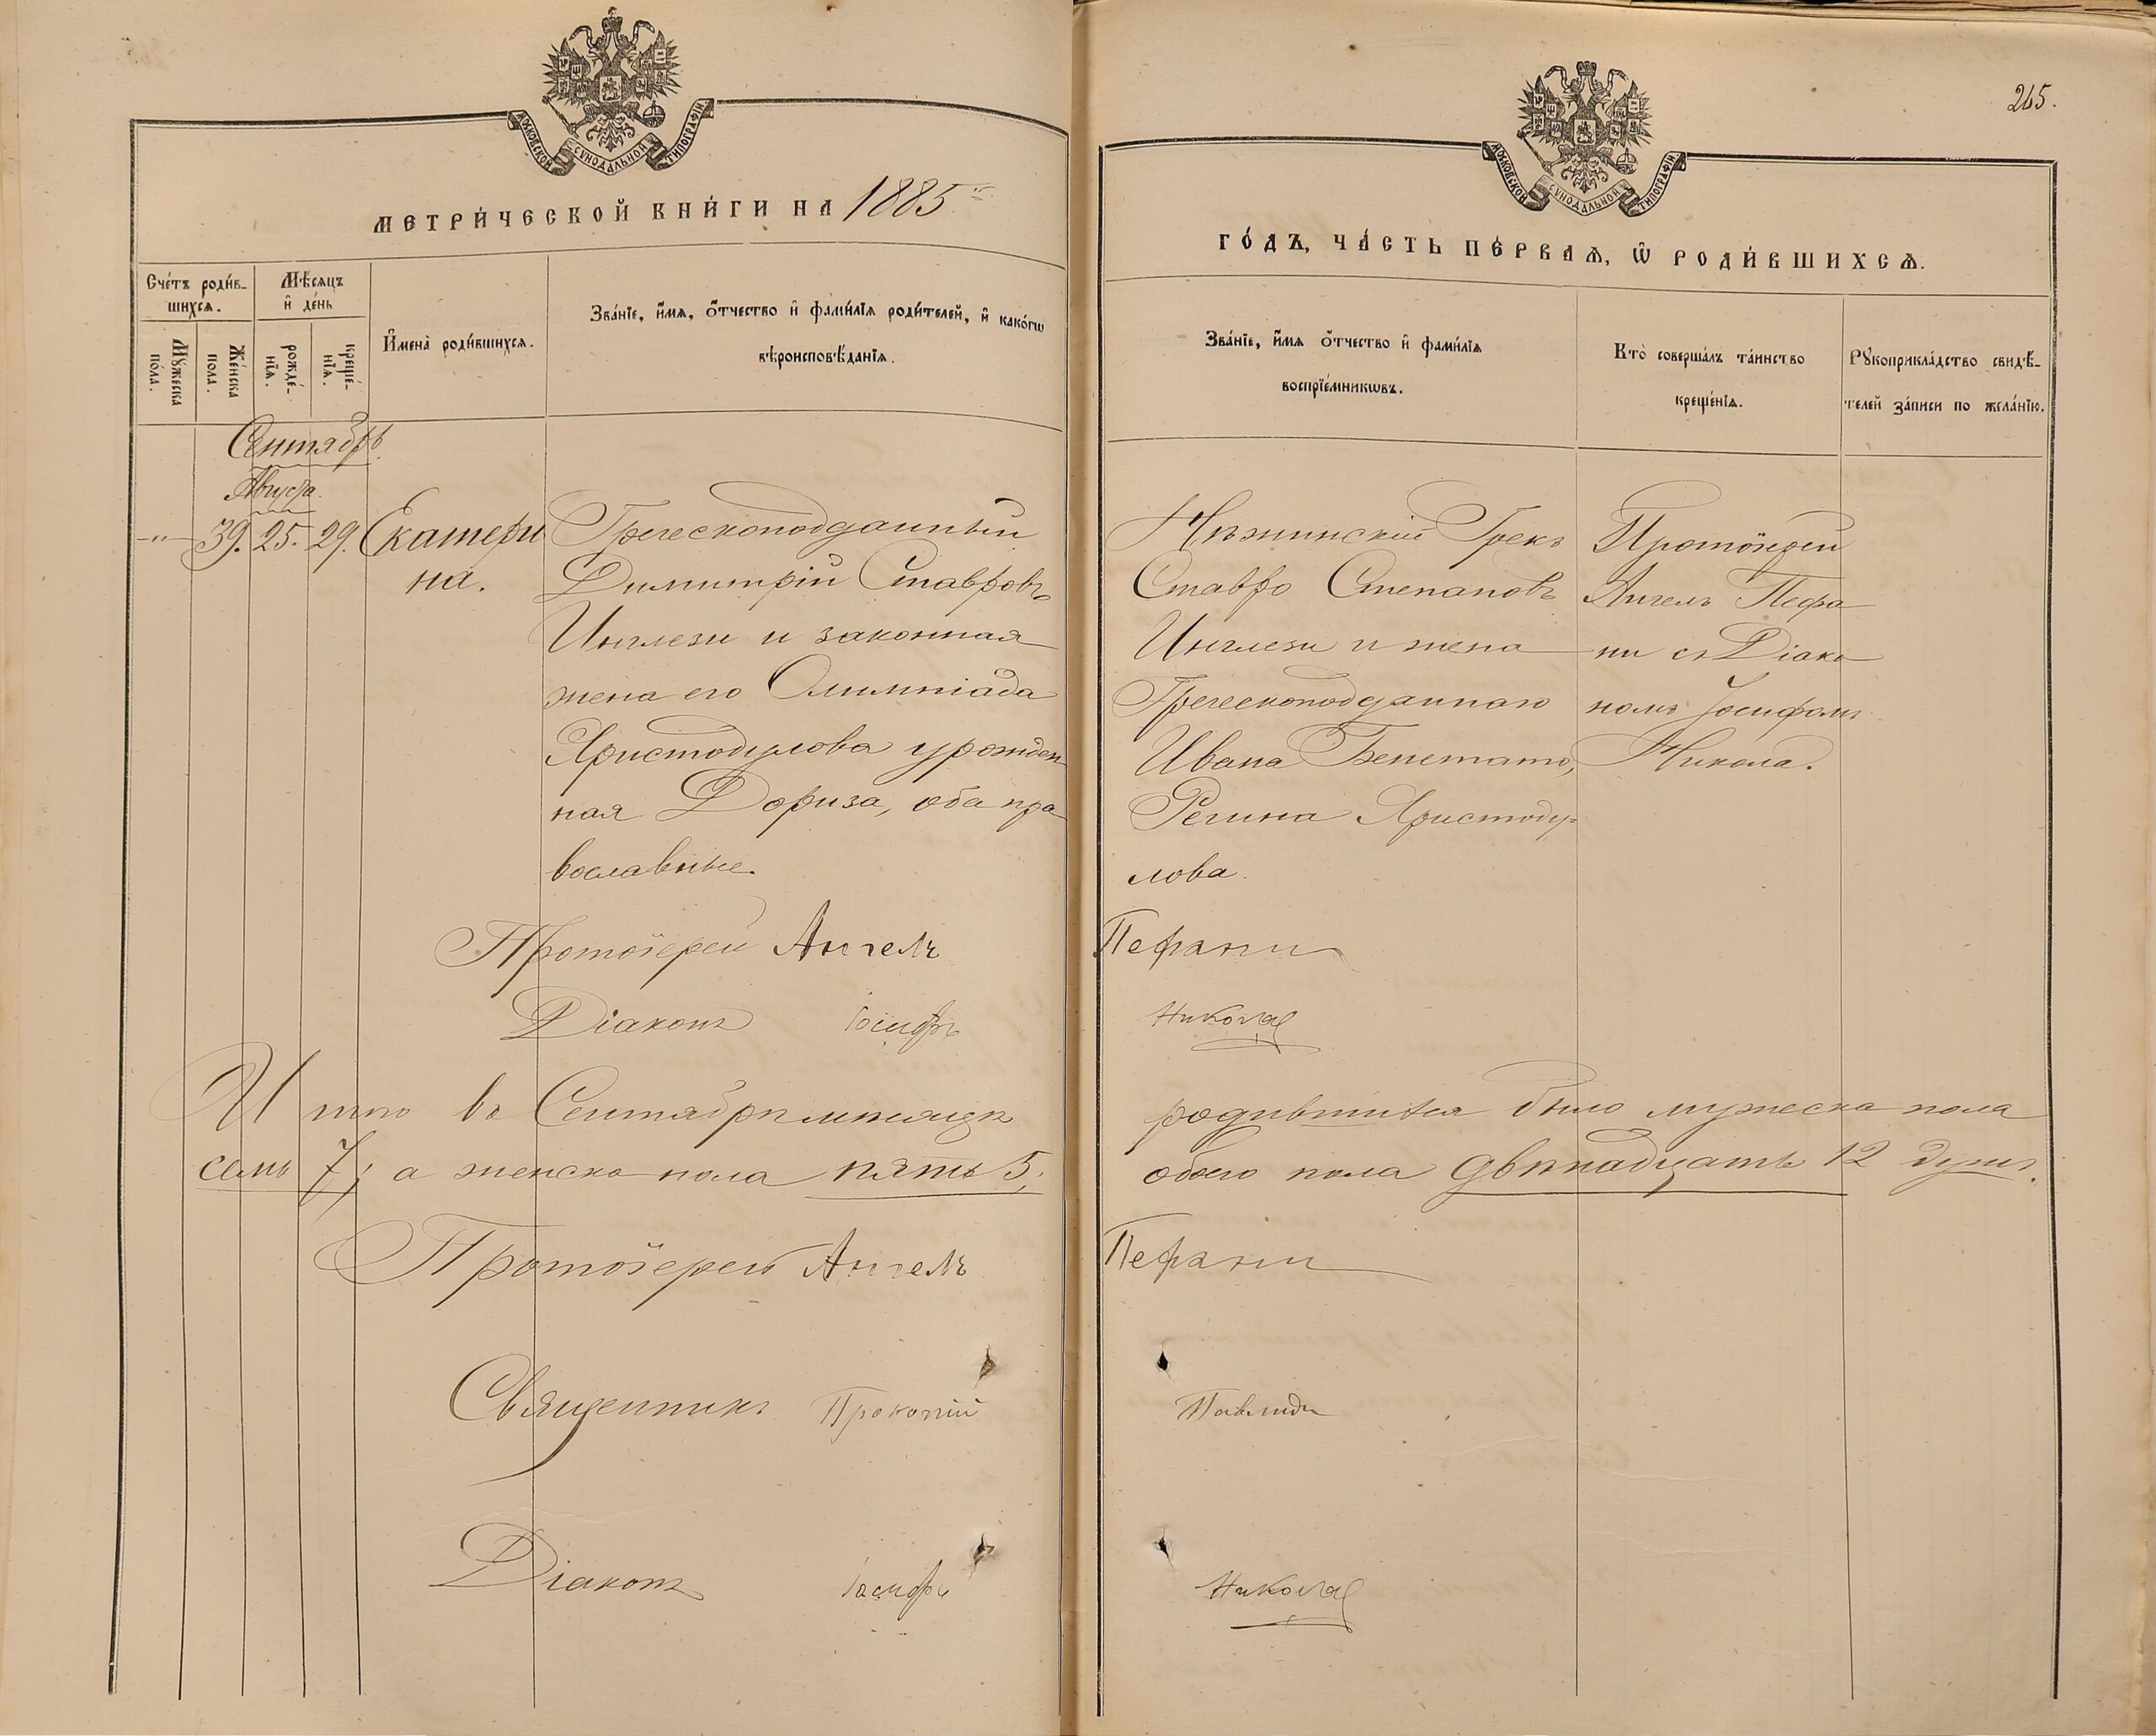 МОСКОВСКОЙ СУНОДАЛЬНОЙ ТИПОГРАФІИ
МЕТРИ́ЧЕСКОЙ КНИ́ГИ НА 1885
Сче́тъ роди́в-
шихсѧ.
Мꙋ́жеска
по́ла.
Же́нска
пола.
Мѣ́сѧцъ
и҆ де́нь
рожде́-
нїѧ.
креще́-
нїѧ.
И҆мена̀ роди́вшихсѧ.
Зва́нїе, и҆́мѧ, ѻ҆́тчество и҆ фами́лїѧ роди́телей, и҆ како́гѡ
вѣроисповѣ́данїѧ.
Сентябрь
Августа
-"- 39. 25. 29. Екатери
на.
Греческоподданный
Димитрій Ставровъ
Инглези и законная
жена его Олимпіада
Христодулова урожден
ная Дориза, оба пра
вославные.
Протоіерей Ангелъ
Діаконъ Іосифъ
Итого въ Сентябрѣ мѣсяцѣ
семь 7; а женска пола пять 5;
Протоіерей Ангелъ
Священникъ Прокопій
Діаконъ Іосифъ
265.
МОСКОВСКОЙ СУНОДАЛЬНОЙ ТИПОГРАФІИ
ГО́ДЪ, ЧА́СТЬ ПЕ́РВАѦ, Ѡ҆ РОДИ́ВШИХСѦ.
Зва́нїе, и҆́мѧ ѻ҆́тчество и҆ фами́лїѧ
воспрїе́мникѡвъ.
Кто̀ соверша́лъ та́инство
креще́нїѧ.
Рꙋкоприкла́дство свидѣ́-
телей за́писи по жела́нїю.
Нѣжинскій Грекъ
Ставро Степановъ
Инглези и жена
Греческоподданнаго
Ивана Бенетато,
Регина Христоду=
лова.
Протоіерей
Ангелъ Пефа
ни съ Діако
номъ Іосифомъ
Никола.
Пефани
Николаѣ
родившихся было мужеска пола
обоего пола двѣнадцать 12 душъ.
Пефани
Павлиди
Николаѣ